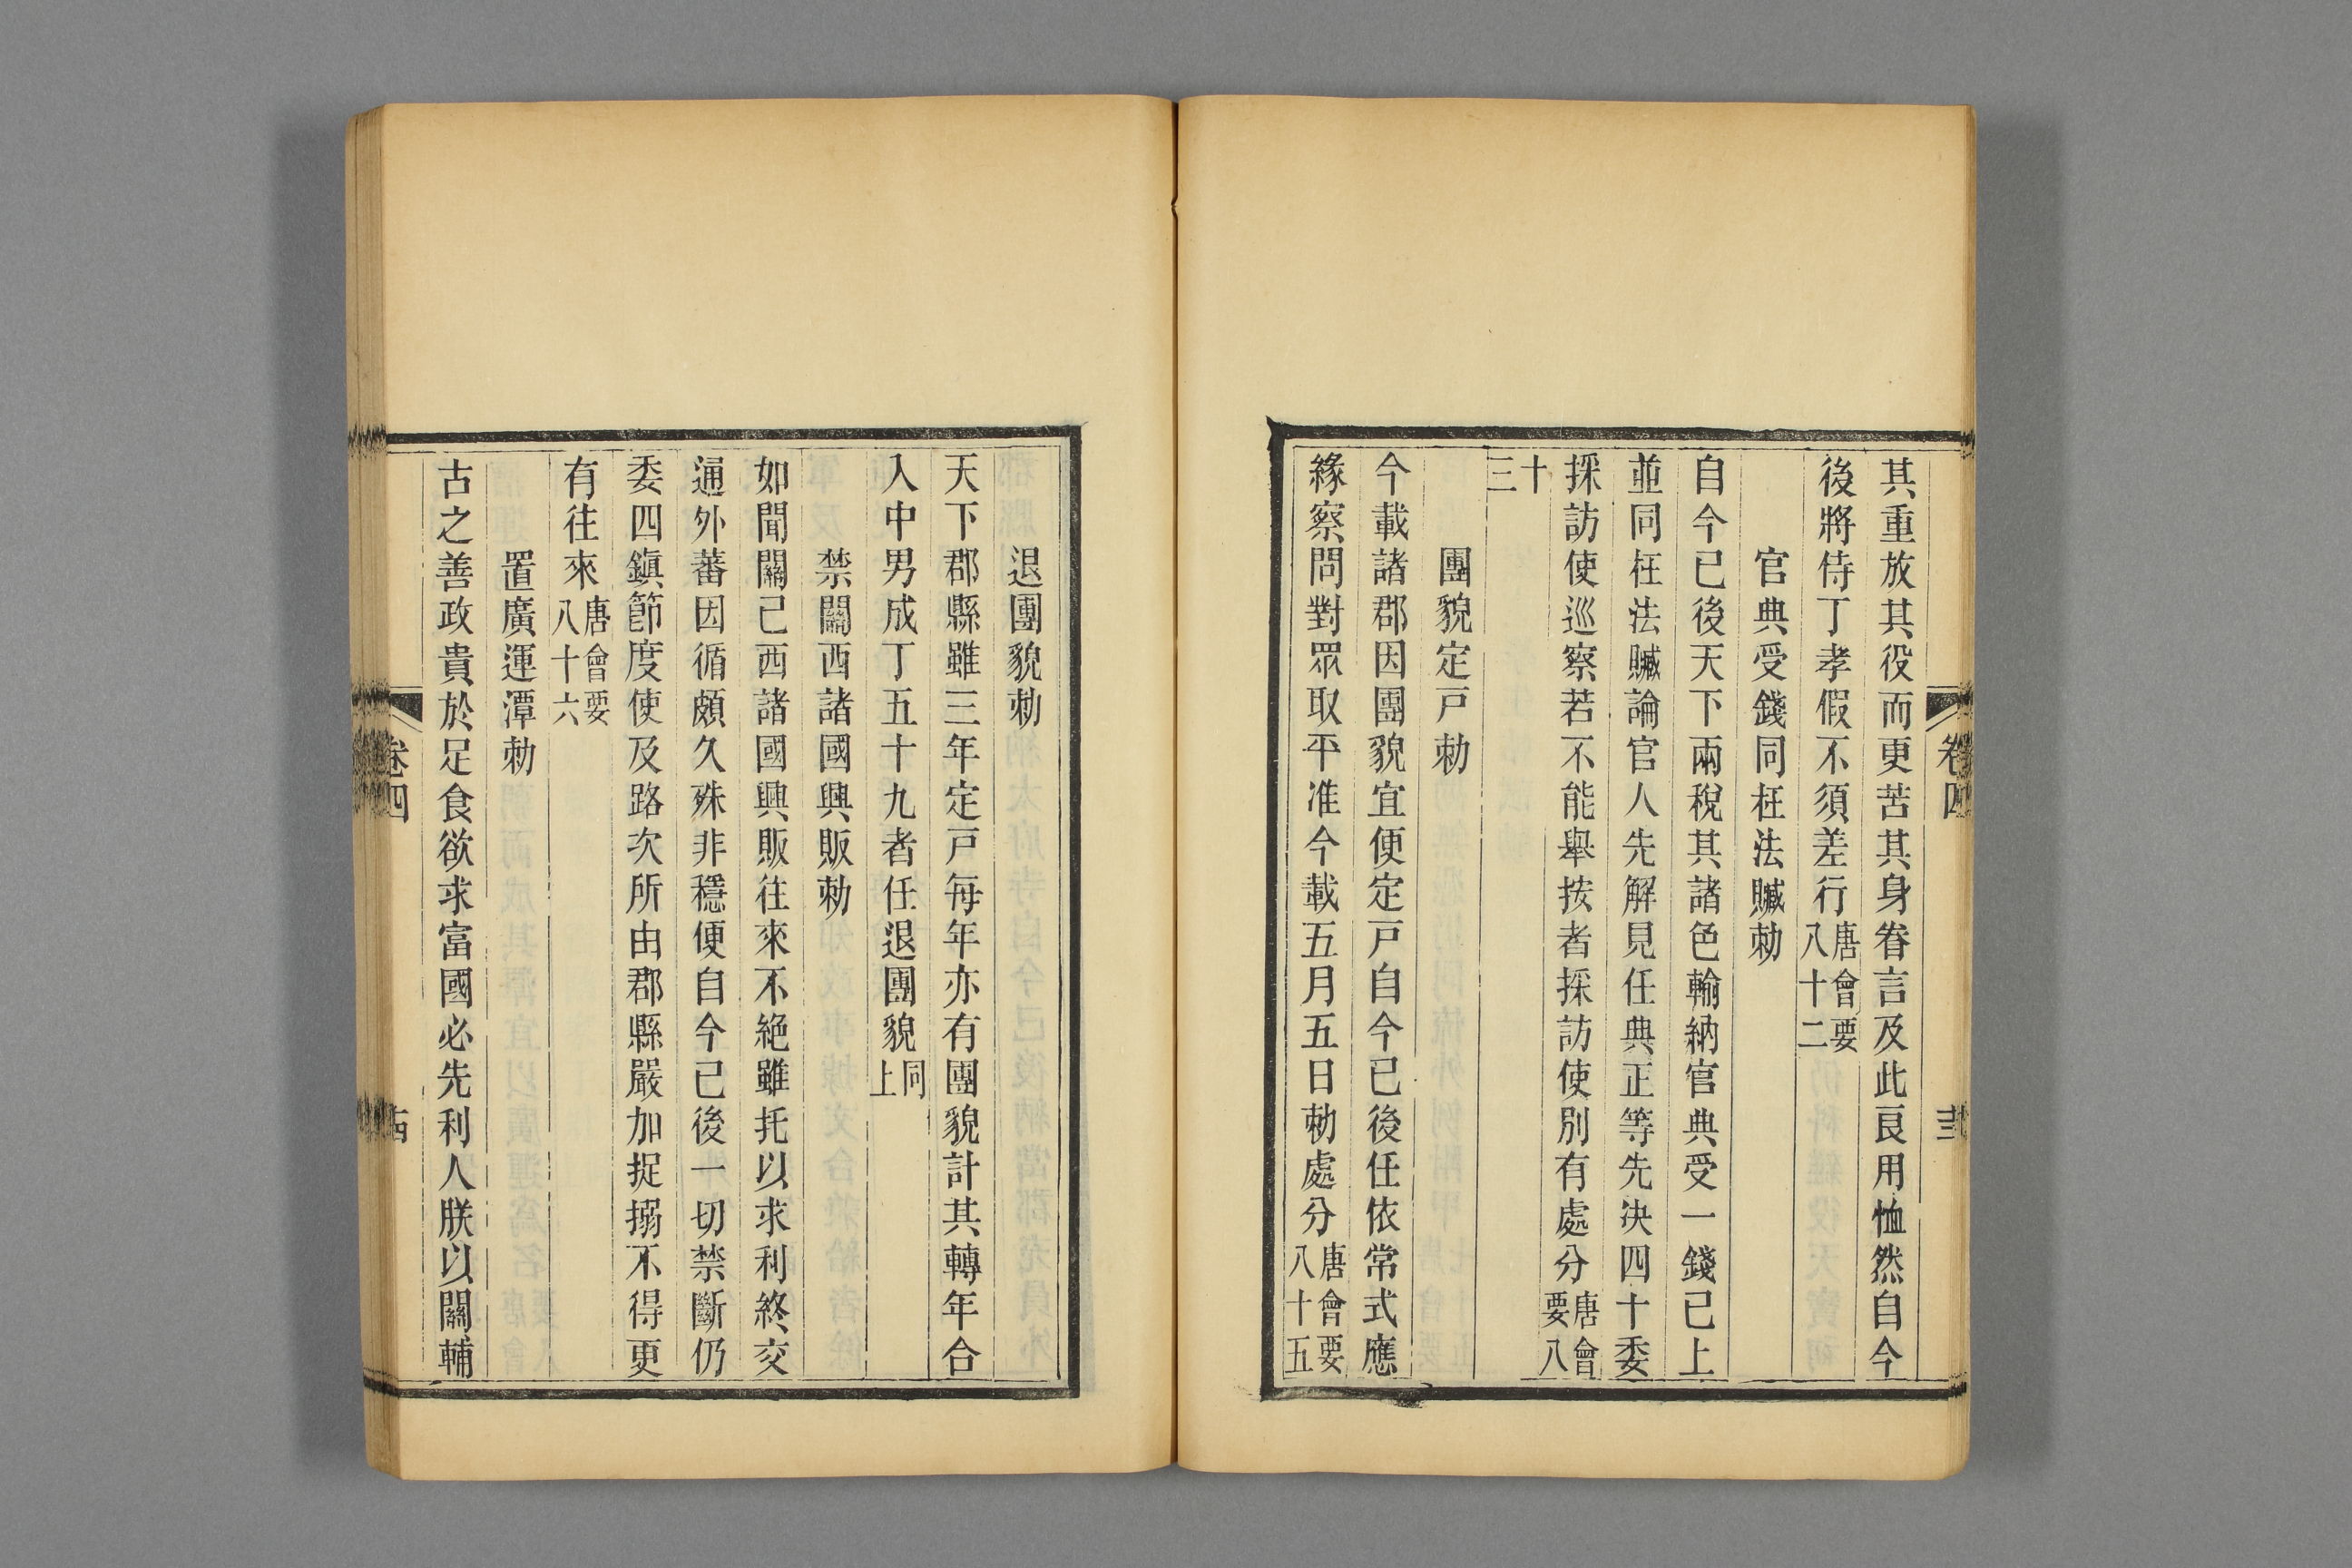 其重放其役而更苦其身眷言及此良用恤然自今
後將侍丁孝假不須差行唐會要八十二
官典受錢同枉法贓勅
自今已後天下兩稅其諸色輸納官典受一錢已上
並同枉法贓論官人先解見任典正等先決四十委
採訪使巡察若不能舉按者採訪使別有處分唐會要八
十三
團貌定戸勅
今載諸郡因團貌宜便定戸自今已後任依常式應
緣察問對眾取平准今載五月五日勅處分唐會要八十五
卷四
退團貌勅
天下郡縣雖三年定戸每年亦有團貌計其轉年合
入中男成丁五十九者任退團貌同上
禁關西諸國興販勅
如聞關已西諸國興販往來不絕雖托以求利終交
通外蕃因循頗久殊非穩便自今已後一切禁斷仍
委四鎮節度使及路次所由郡縣嚴加捉搦不得更
有往來唐會要八十六
置廣運潭勅
古之善政貴於足食欲求富國必先利人朕以關輔
卷四